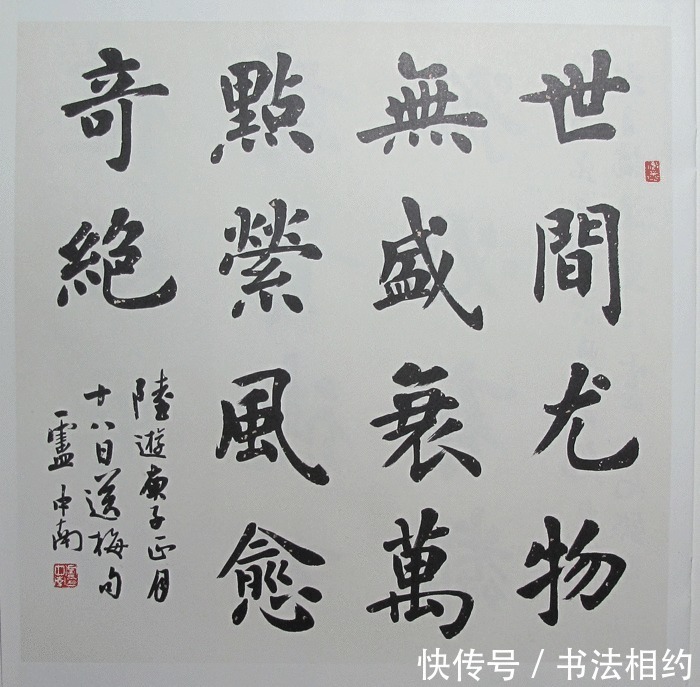 世間尤物
無盛衰萬
點縈風愈
奇絶
陸遊庚子正月
十八日送梅句
盧中南
快传号 / 书法相约